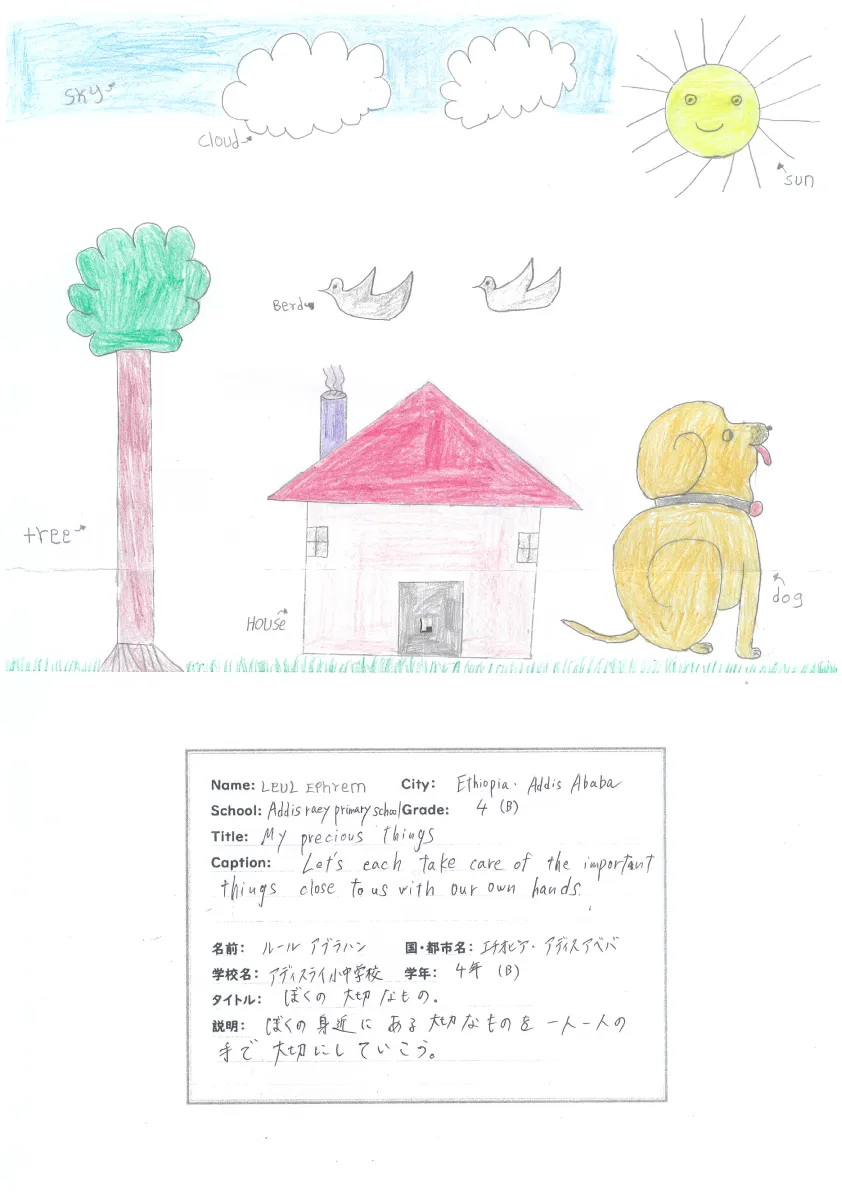 sky
cloud
sun
Berd
tree
House
dog
Name: LEUL EPhrem City: Ethiopia. Addis Ababa
School: Addis raey primary school Grade: 4 (B)
Title: My precious things
Caption: Let's each take care of the important
things close to us with our own hands.
名前: ルール アブラハン 国・都市名: エチオピア・アディスアベバ
学校名: アディスライ小中学校 学年: 4年 (B)
タイトル: ぼくの 大切なもの。
説明: ぼくの 身近に ある 大切なものを 一人一人の
手で 大切にし ていこう。